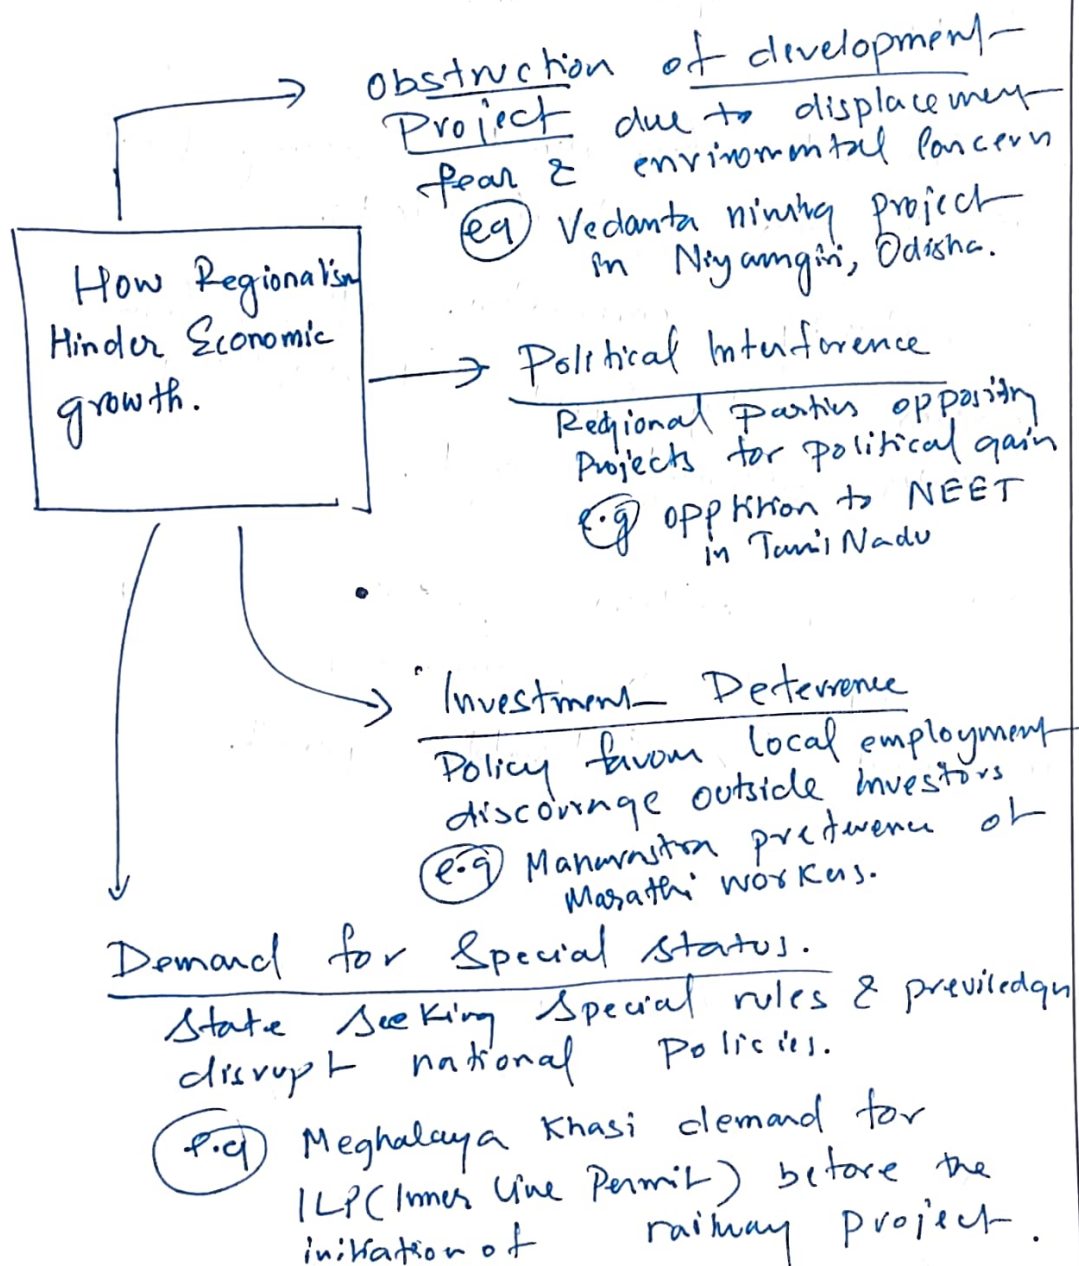 Obstruction of development
Project due to displacement
fear & environmental concern
eg Vedanta mining project
in Niyamgiri, Odisha.
How Regionalism
Hinder Economic
growth.
Political Interference
Regional parties opposing
Projects for political gain
e.g opptition to NEET
in Tamil Nadu
Investment Deterrence
Policy favour local employment
discourage outside investors
e.g Maharastra preference of
Marathi workers.
Demand for Special status.
State seeking special rules & previledge
disrupt national Policies.
e.g Meghalaya Khasi demand for
ILP (Inner Line Permit) before the
initiation of railway project.